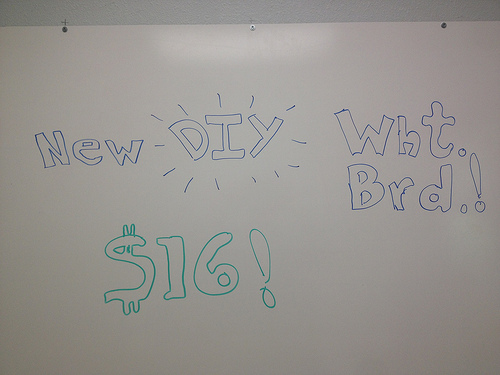 New DIY Wht.
Brd.!
$16!